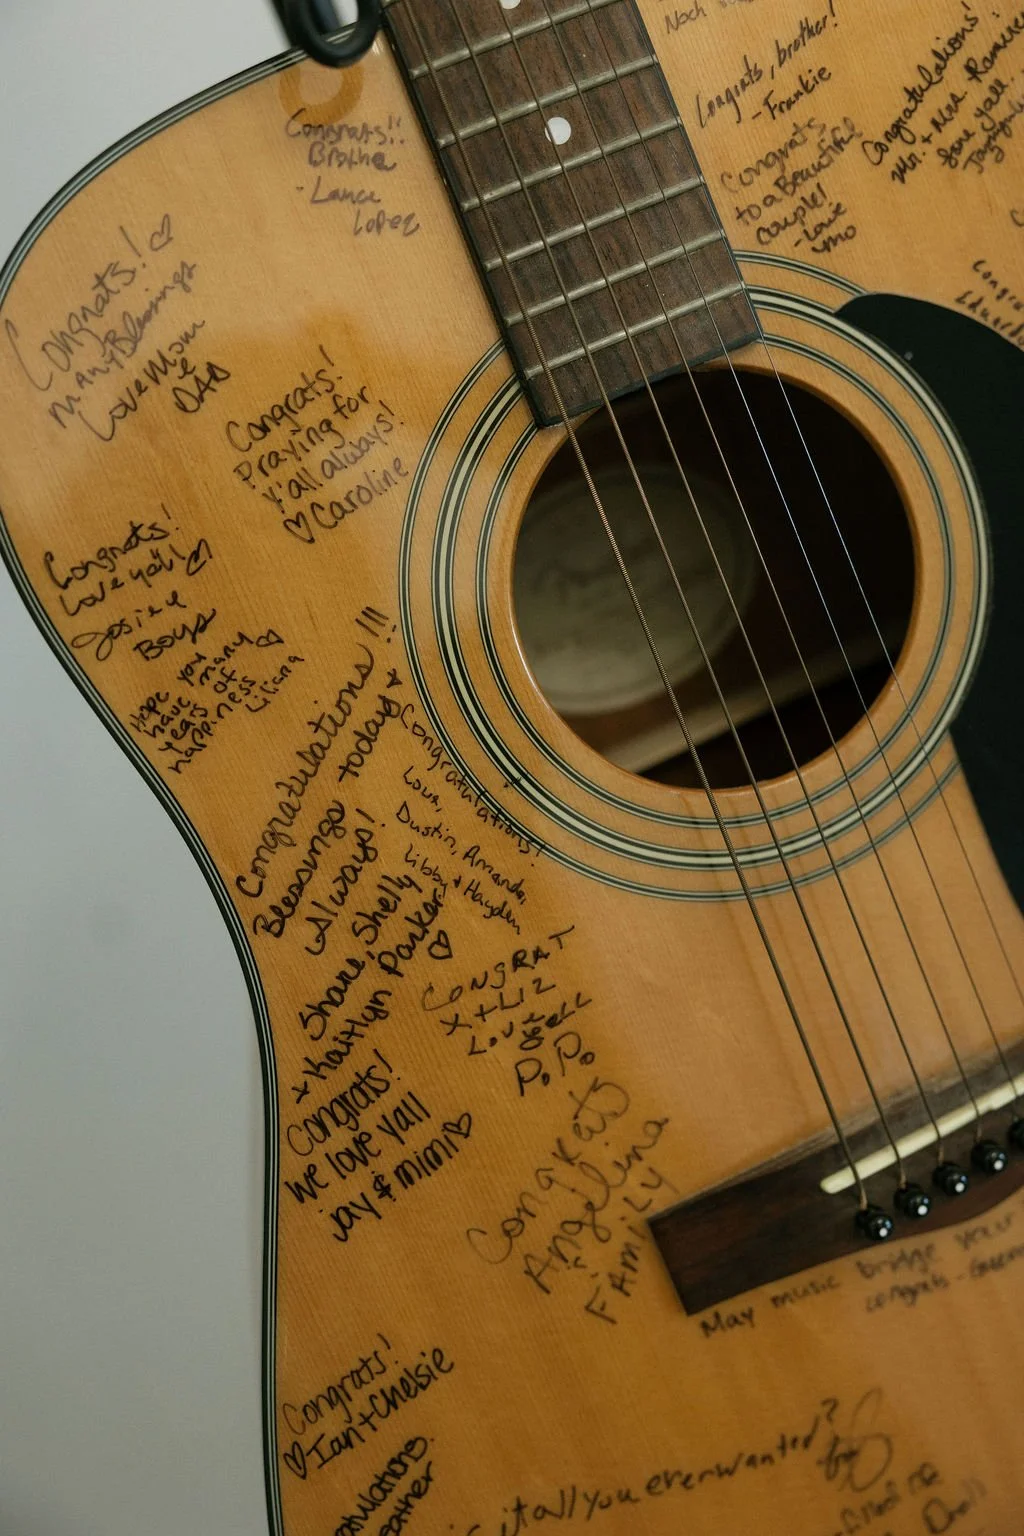 Congrats!!
- Lance
Lopez
Congrats, brother!
- Frankie
Congrats
to a Beautiful
couple!
- Love
Mo
Congratulations!
Mr. + Mrs. Ramirez
love yall
Congrats!
Many Blessings
Love Mom
&
DAD
Congrats!
Praying for
y'all always!
♡ Caroline
Congrats!
Love yall
Josie &
Boys
Hope you
have many
years of
happiness
Liliana
Congratulations!!!
Blessings today &
Always!
Shane, Shelly
+ Kaitlyn Parker
♡
Congratulations!
Love,
Dustin, Amanda,
Libby + Hayden
CONGRAT
X + LIZ
LOVE
Congrats!
We love yall
Jay & mimi
Congrats
Angelina
FAMiLY
May music bridge your
congrats -
Congrats!
♡ Ian + Chelsie
it all you ever wanted?